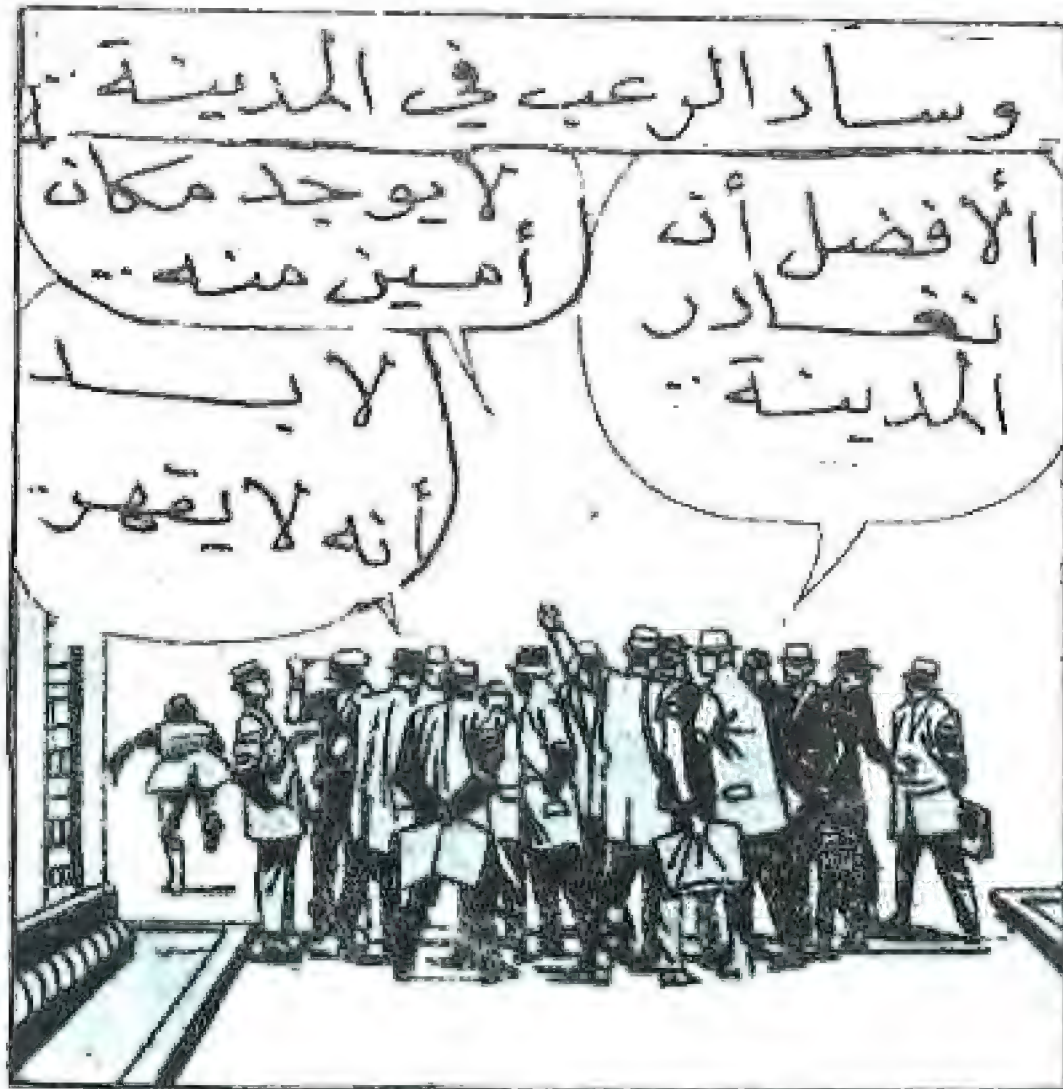 وساد الرعب في المدينة..
الأفضل أن
نغادر
المدينة..
لا يوجد مكان
أمين منه..
لا بد
أنه لا يقهر..